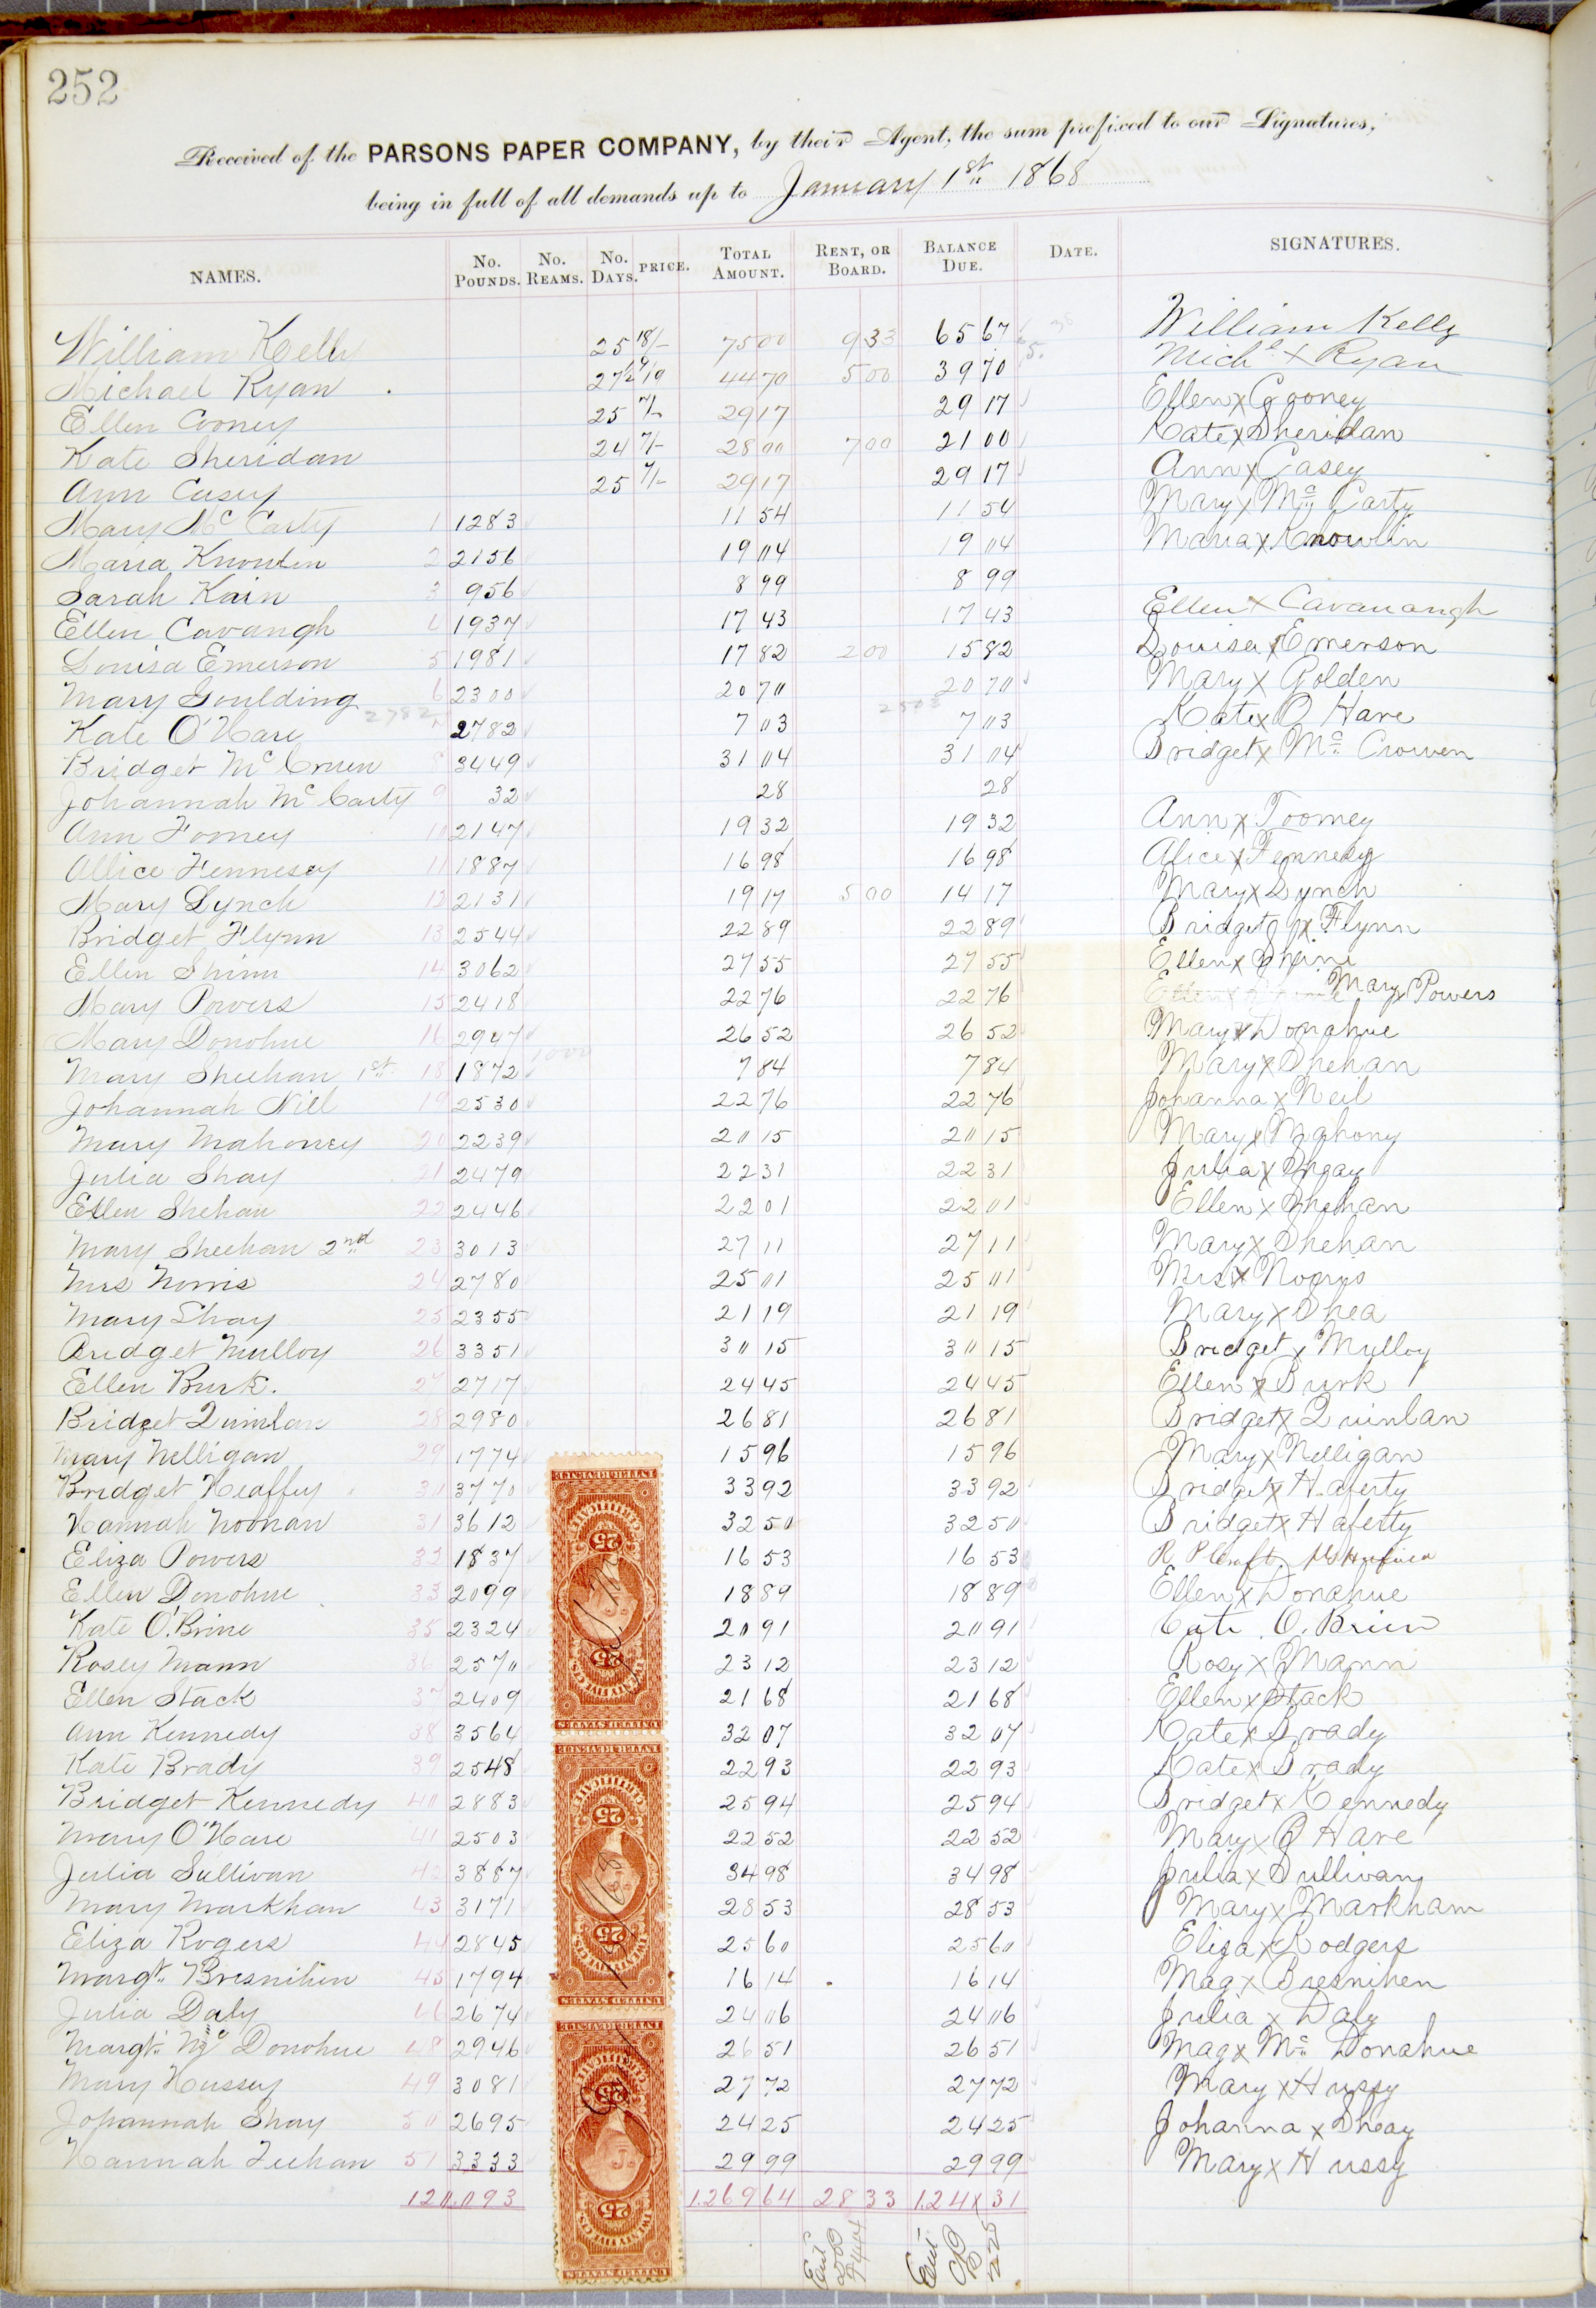 252
Received of the PARSONS PAPER COMPANY, by their Agent, the sum prefixed to our Signatures,
being in full of all demands up to January 1st 1868
NAMES. No. Pounds. No. Reams. No. Days. PRICE. Total Amount. Rent, or Board. Balance Due. Date. SIGNATURES.
William Kelly 25 18/- 75 00 9 33 65 67 William Kelly
Michael Ryan 27 1/2 9/9 44 70 5 00 39 70 Michl x Ryan
Ellen Cooney 25 7/- 29 17 29 17 Ellen x Cooney
Kate Sheridan 24 7/- 28 00 7 00 21 00 Kate x Sheridan
Ann Casey 25 7/- 29 17 29 17 Ann x Casey
Mary Mc Carty 1 1283 11 54 11 54 Mary x Mc Carty
Maria Knowlin 2 2156 19 04 19 04 Maria x Knowlin
Sarah Kain 3 956 8 99 8 99
Ellen Cavangh 4 1937 17 43 17 43 Ellen x Cavanaugh
Louisa Emerson 5 1981 17 82 2 00 15 82 Louisa x Emerson
Mary Goulding 6 2300 20 70 20 70 Mary x Golden
Kate O'Hare 2782 7 2782 7 03 2503 7 03 Kate x O Hare
Bridget Mc Cruen 8 3449 31 04 31 04 Bridget x Mc Crowen
Johannah Mc Carty 9 32 28 28
Ann Toomey 10 2147 19 32 19 32 Ann x Toomey
Allice Fennesey 11 1887 16 98 16 98 Alice x Fennesy
Mary Lynch 12 2131 19 17 5 00 14 17 Mary x Lynch
Bridget Flynn 13 2544 22 89 22 89 Bridget x Flynn
Ellen Shinn 14 3062 27 55 27 55 Ellen x Shine
Mary Powers 15 2418 22 76 22 76 Mary x Powers
Mary Donohue 16 2947 26 52 26 52 Mary x Donahue
Mary Sheehan 1st 18 1872 1000 7 84 7 84 Mary x Shehan
Johannah Nill 19 2530 22 76 22 76 Johanna x Neil
Mary Mahoney 20 2239 20 15 20 15 Mary x Mahony
Julia Shay 21 2479 22 31 22 31 Julia x Sheay
Ellen Shehan 22 2446 22 01 22 01 Ellen x Shehan
Mary Sheehan 2nd 23 3013 27 11 27 11 Mary x Shehan
Mrs Norris 24 2780 25 01 25 01 Mrs x Norris
Mary Shay 25 2355 21 19 21 19 Mary x Shea
Bridget Mulloy 26 3351 30 15 30 15 Bridget x Mulloy
Ellen Burk. 27 2717 24 45 24 45 Ellen x Burk
Bridget Quinlan 28 2980 26 81 26 81 Bridget x Quinlan
Mary Nelligan 29 1774 15 96 15 96 Mary x Nelligan
Bridget Heaffey 30 3770 33 92 33 92 Bridget x Haferty
Hannah Noonan 31 3612 32 50 32 50 Bridget x Haferty
Eliza Powers 32 1837 16 53 16 53 R P Craft
Ellen Donohue 33 2099 18 89 18 89 Ellen x Donahue
Kate O'Brine 35 2324 20 91 20 91 Cate O. Brien
Rosey Mann 36 2570 23 12 23 12 Rosy x Mann
Ellen Stack 37 2409 21 68 21 68 Ellen x Stack
Ann Kennedy 38 3564 32 07 32 07 Kate x Brady
Kate Brady 39 2548 22 93 22 93 Kate x Brady
Bridget Kennedy 40 2883 25 94 25 94 Bridget x Kennedy
Mary O'Hare 41 2503 22 52 22 52 Mary x O Hare
Julia Sullivan 42 3887 34 98 34 98 Julia x Sullivan
Mary Markham 43 3171 28 53 28 53 Mary x Markham
Eliza Rogers 44 2845 25 60 25 60 Eliza x Rodgers
Margt. Bresnihen 45 1794 16 14 16 14 Mag x Bresnihen
Julia Daly 46 2674 24 06 24 06 Julia x Daly
Margt. Mc Donohue 48 2946 26 51 26 51 Mag x Mc Donahue
Mary Hussey 49 3081 27 72 27 72 Mary x Hussy
Johannah Shay 50 2695 24 25 24 25 Johanna x Sheay
Hannah Feehan 51 3333 29 99 29 99 Mary x Hussy
120,093 1269 64 28 33 1241 31
INTER. REVENUE
CERTIFICATE
25
TWENTY FIVE CTS.
UNITED STATES
INTER. REVENUE
CERTIFICATE
25
TWENTY FIVE CTS.
UNITED STATES
INTER. REVENUE
25
TWENTY FIVE CTS.
UNITED STATES